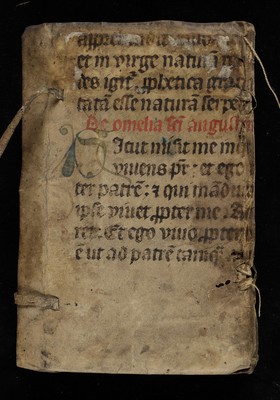 et in virge naturā
des igit᷑ ꝓphetica
tatā esse naturā serpē
De omelia sc̄i august
Sicut misit me
vivens pr̄: et ego
ter patrē: ⁊ qui mād
ipse vivet ꝓpter me.
ret. Et ego vivo ꝓpter
ē ut ad patrē